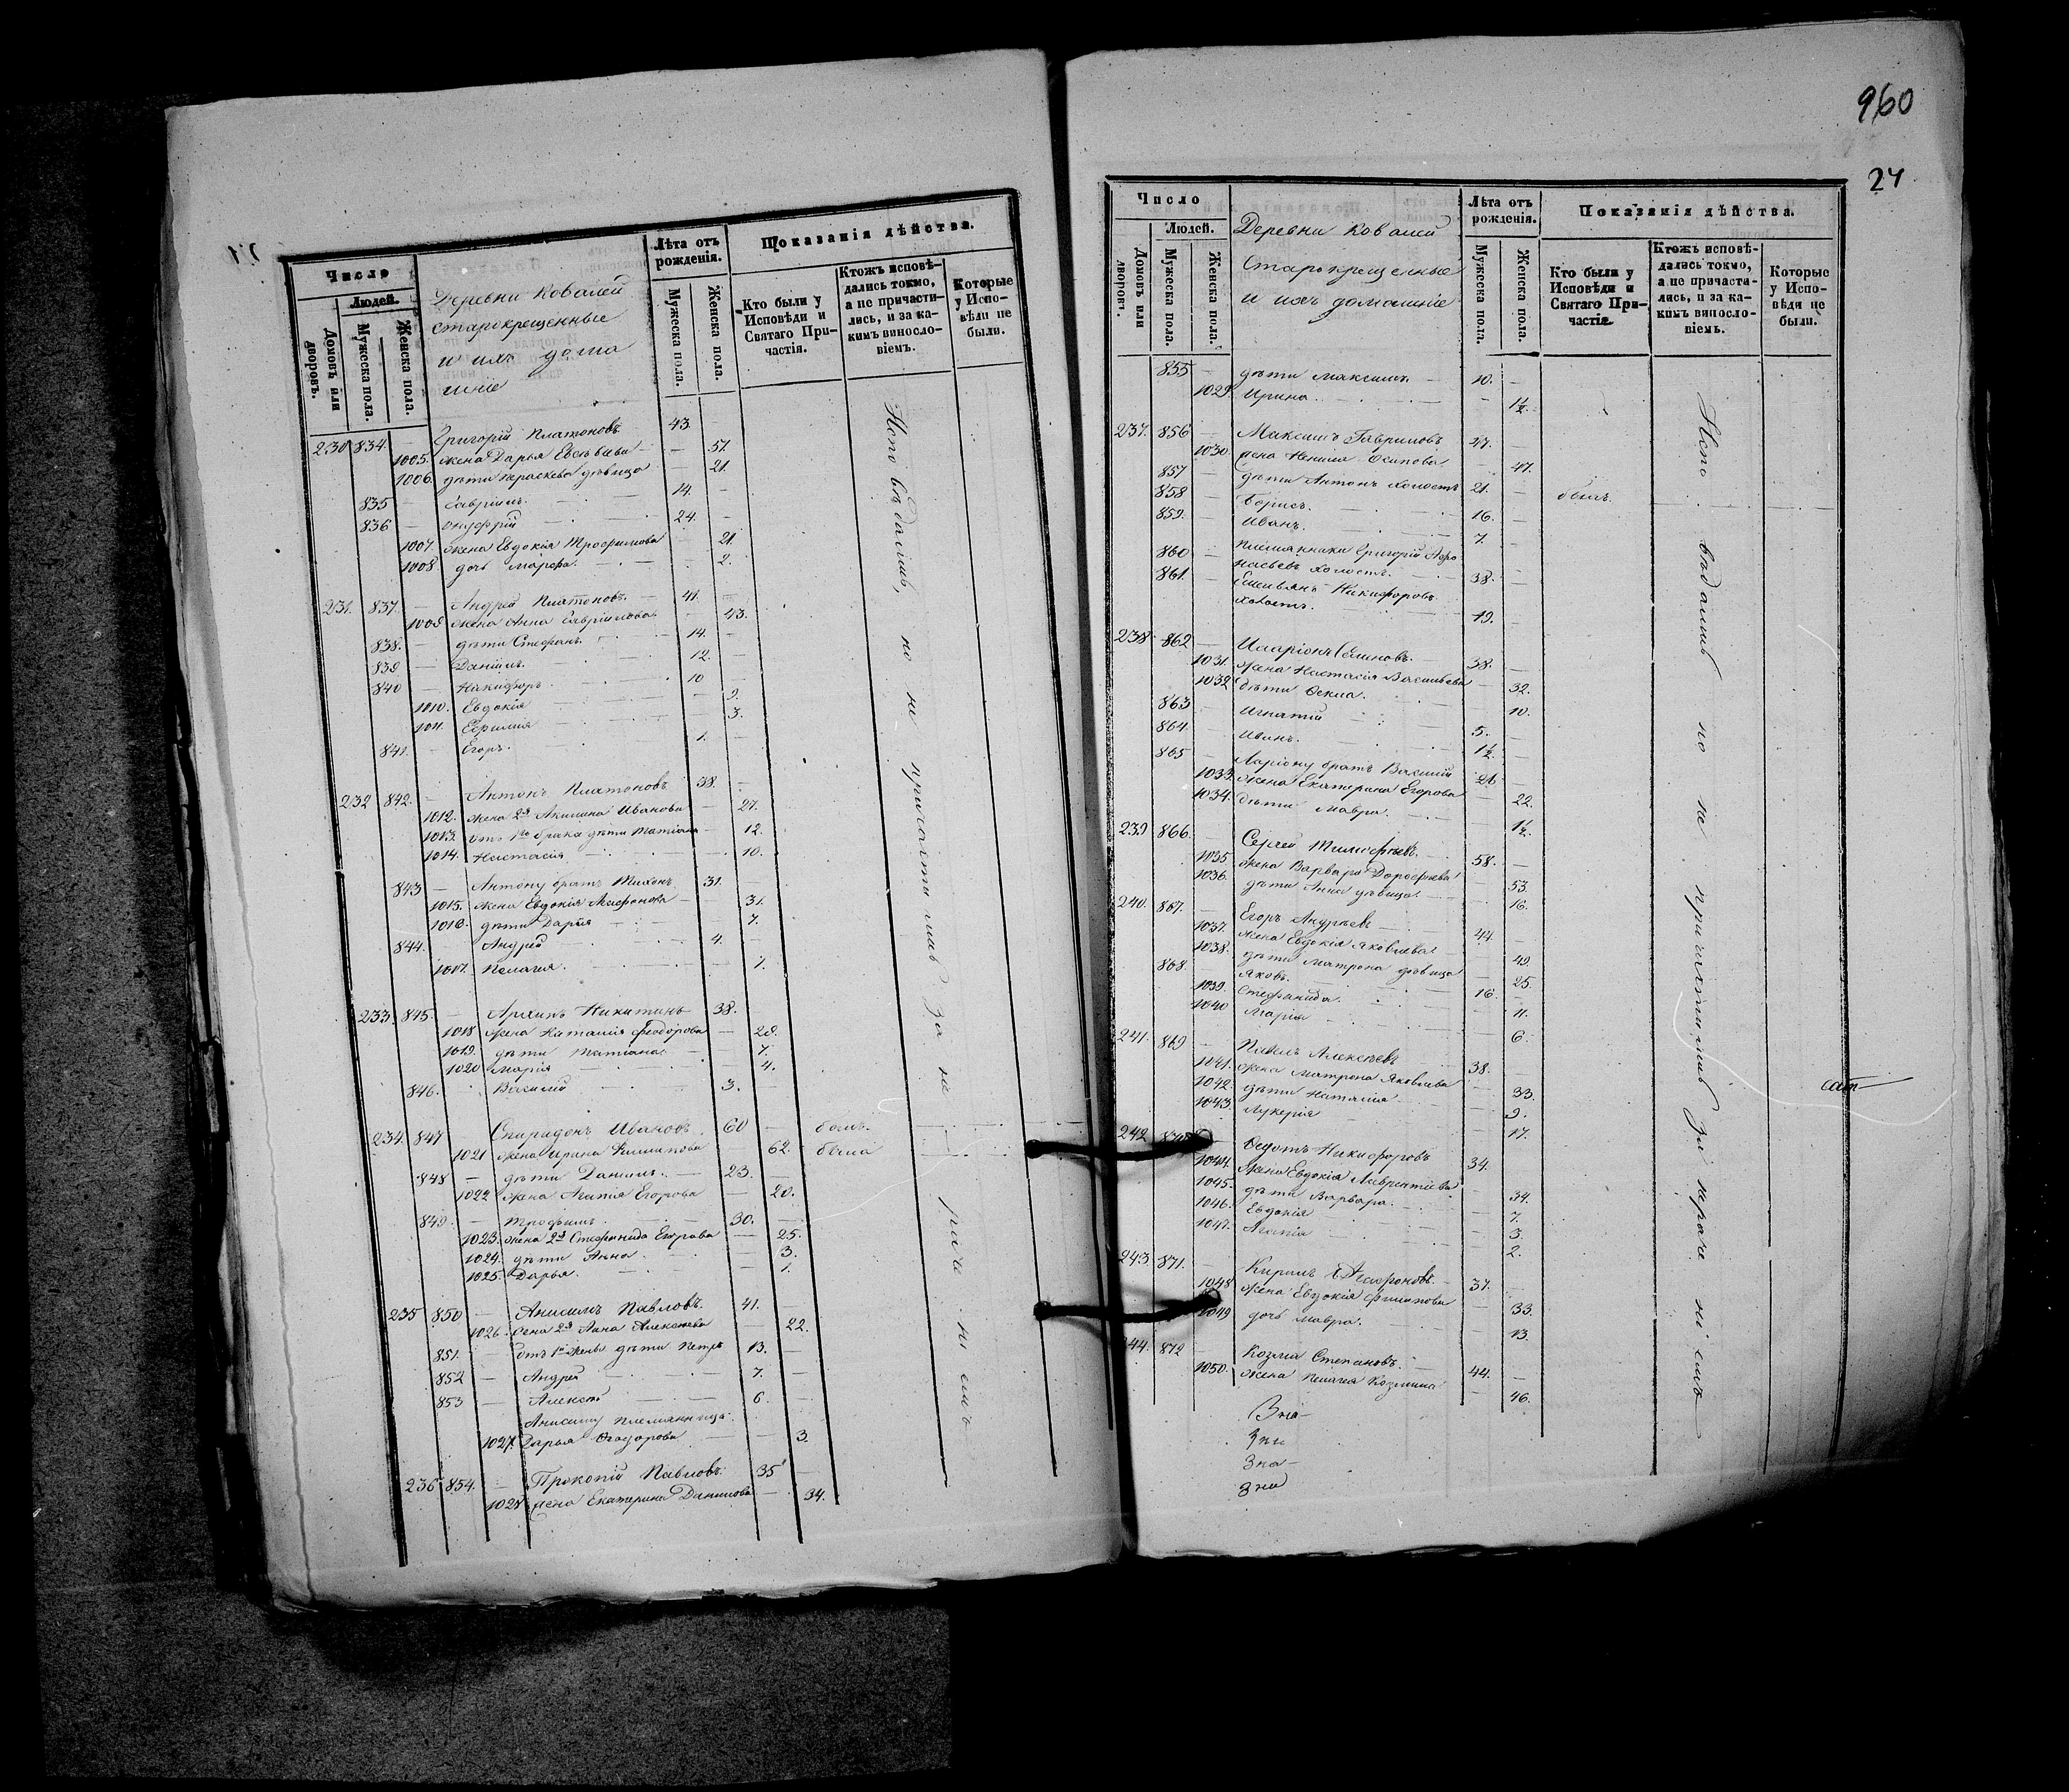 Число
Людей.
Домовъ или дворовъ.
Мужеска пола.
Женска пола.
Деревни Ковалей
старокрещенные
и ихъ дома
шніе
Лѣта отъ рожденія.
Мужеска пола.
Женска пола.
Показанія дѣйства.
Кто были у Исповѣди и Святаго Причастія.
Ктожъ исповѣдались токмо, а не причастились, и за какимъ винословіемъ.
Которые у Исповѣди не были.
230 834. — Григорій Платоновъ 43. —
1005. жена Дарья — 51.
1006. дѣти Параскева дѣвица 21.
835 — Гавріилъ. 14. —
836 — Онуфрій 24. —
1007. жена Евдокія Трофимова 21.
1008 дочь Марфа. 2.
231. 837. — Андрей Платоновъ. 41. —
1009 жена Анна Гавріилова 43.
838. — дѣти Стефанъ. 14. —
839 — Даніилъ. 12. —
840 — Никифоръ. 10 —
1010. Евдокія 9.
1011. Ефимія 3.
841. — Егоръ. 1. —
232 842. — Антонъ Платоновъ 38. —
1012. жена 2я Акилина Иванова — 27.
1013. отъ 1го брака дѣти Матіана — 12.
1014. Настасія 10.
843 — Антону братъ Тихонъ 31. —
1015. жена Евдокія Агафонова — 31.
1016. дѣти Дарія 7.
844. — Андрей 4. —
1017. Пелагія. 1.
233. 845. — Архипъ Никитинъ 38. —
1018 жена Наталія Феодорова — 28.
1019. дѣти Татіана 7.
1020 Марія 4.
846. Василій 3.
234. 847 Спиридонъ Ивановъ. 60 — былъ.
1021 жена Ирина Филипова 62. была
848 — дѣти Даніилъ. 23. —
1022 жена Агапія Егорова — 20.
849. — Трофимъ. 30. —
1023. жена 2я Стефанида Егорова — 25.
1024. дѣти Анна. 3.
1025. Дарья. 1.
235 850 — Анисимъ Павловъ. 41. —
1026. жена 2я Анна Алексѣева — 22.
851. — отъ 1й жены дѣти Петръ 13. —
852 — Андрей 7. —
853 — Алексѣй 6. —
Анисиму племянница
1027. Дарья Феодорова — 3.
236 854. — Прокопій Павловъ 35 —
1028 жена Екатерина Данилова — 34.
Исповѣдались, но не причастились за не раче ні емъ
960
24
Число
Людей.
Домовъ или дворовъ.
Мужеска пола.
Женска пола.
Деревни Ковалей
Старокрещенные
и ихъ домашніе
Лѣта отъ рожденія.
Мужеска пола.
Женска пола.
Показанія дѣйства.
Кто были у Исповѣди и Святаго Причастія.
Ктожъ исповѣдались токмо, а не причастились, и за какимъ винословіемъ.
Которые у Исповѣди не были.
855 — дѣти Максимъ. 10. —
1029. Ирина. — 1½.
237. 856 — Максимъ Гавриловъ 47. —
1030. жена Осипова 47.
857 — дѣти Антонъ холостъ 21. — былъ.
858 — Борисъ. 16. —
859. Иванъ. 7. —
860 — племянники Григорій Афо
насьевъ холостъ. 38. —
861. — Емельянъ Никифоровъ
холостъ. 19. —
238 862 — Иларіонъ 38. —
1031. жена Настасія Васильева — 32.
1032 дѣти Фекла. 10.
863 — Игнатій 5. —
864. Иванъ. 1½ —
865 — Ларіону братъ Василій 26 —
1033. жена Екатерина Егорова — 22.
1034. дѣти Мавра. 1½.
239 866. — Сергей Тимофѣевъ. 58. —
1035 жена Варвара Дорофѣева 53.
1036. дѣти Анна дѣвица. 16.
240. 867. — Егоръ Андрѣевъ 44. —
1037. жена Евдокія Яковлева 49
1038. дѣти Матрона дѣвица 25.
868. Яковъ. 16. —
1039. Стефанида. 11.
1040 Марія 6.
241. 869 — Павелъ Алексѣевъ 38. —
1041. жена Матрона Яковлева 33.
1042. дѣти Наталія 9.
1043. Лукерія 17.
242 870 Федотъ Никифоровъ 34.
1044. жена Евдокія Лаврентіева 34.
1045. дѣти Варвара. 7.
1046. Евдокія 3.
1047. Агапія 2.
243. 871. — Кирилъ Агафоновъ 37. —
1048 жена Евдокія Филипова 33.
1049 дочь Мавра. 13.
244. 872 — Козма Степановъ. 44. —
1050. жена Пелагея Козмина 46.
Испо вѣдались но не причастились за нераче ні емъ